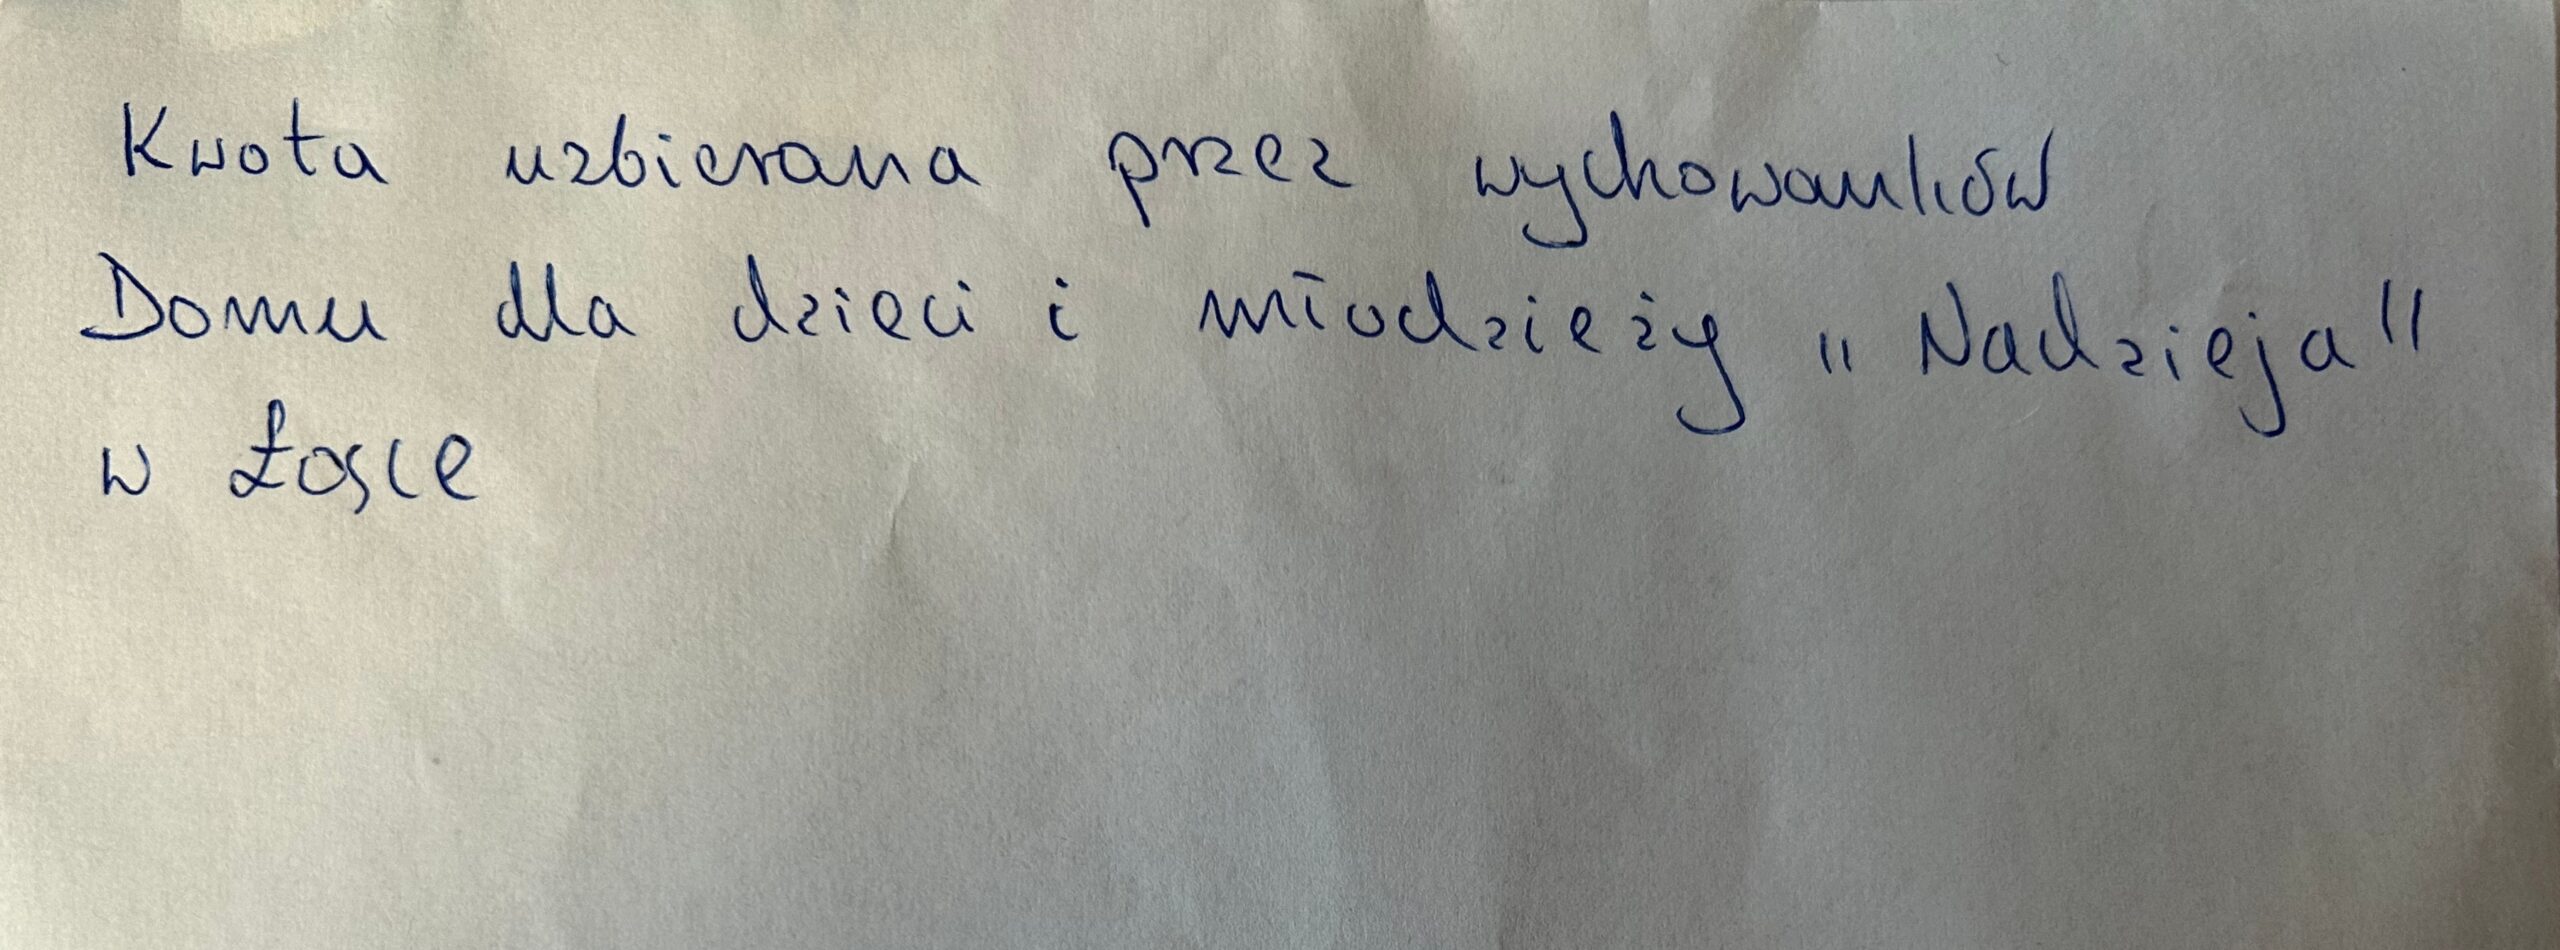 Kwota uzbierana przez wychowanków
Domu dla dzieci i młodzieży „Nadzieja"
w Łosce